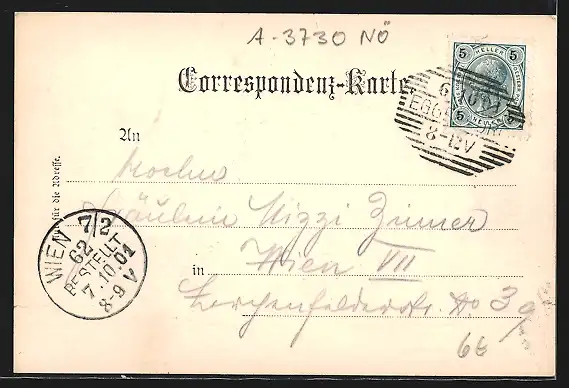 A-3730 NÖ
Correspondenz-Karte
5 HELLER 5
5 5
6 10 01
EGGENBURG
8-12V
An
Nur für die Adresse.
Fräulein Mizzi Zimmer
in Wien VII
Lerchenfelderstr. No 39
WIEN 7/2
62
BESTELLT
7.10.01
8-9V
6E